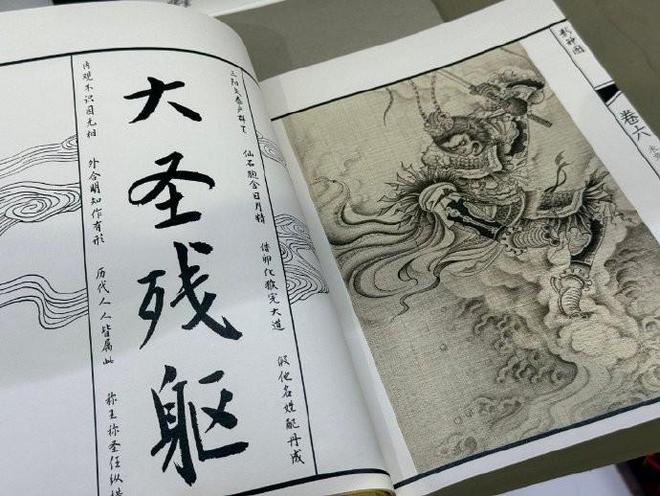 影神图
卷六
三阳交泰产群生 仙石胞含日月精 借卵化猴完大道 假他名姓配丹成
大圣残躯
内观不识因无相 外合明知作有形 历代人人皆属此 称王称圣任纵横